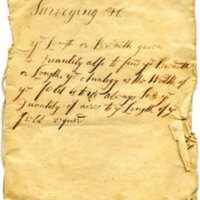 Surveying &c
ye Length or Breadth given
Quantity also to find ye Breadth
or Length ye Analogy as the Width of
ye field is to always Set ye
Quantity of acres to ye Length of ye
field